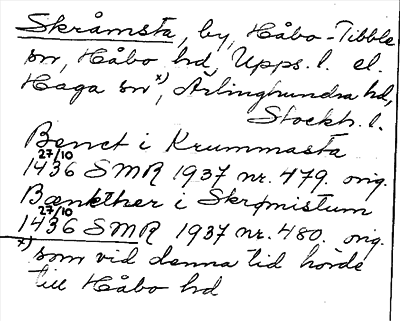 Skråmsta, by, Håbo-Tibble
sn, Håbo hd, Upps. l. el.
Haga sn x), Ärlinghundra hd,
Stockh. l.
Benct i Krummasta
27/10
1436 SMR 1937 nr. 479. orig.
Bænkther i Skromistum
27/10
1436 SMR 1937 nr. 480. orig.
x) som vid denna tid hörde
till Håbo hd